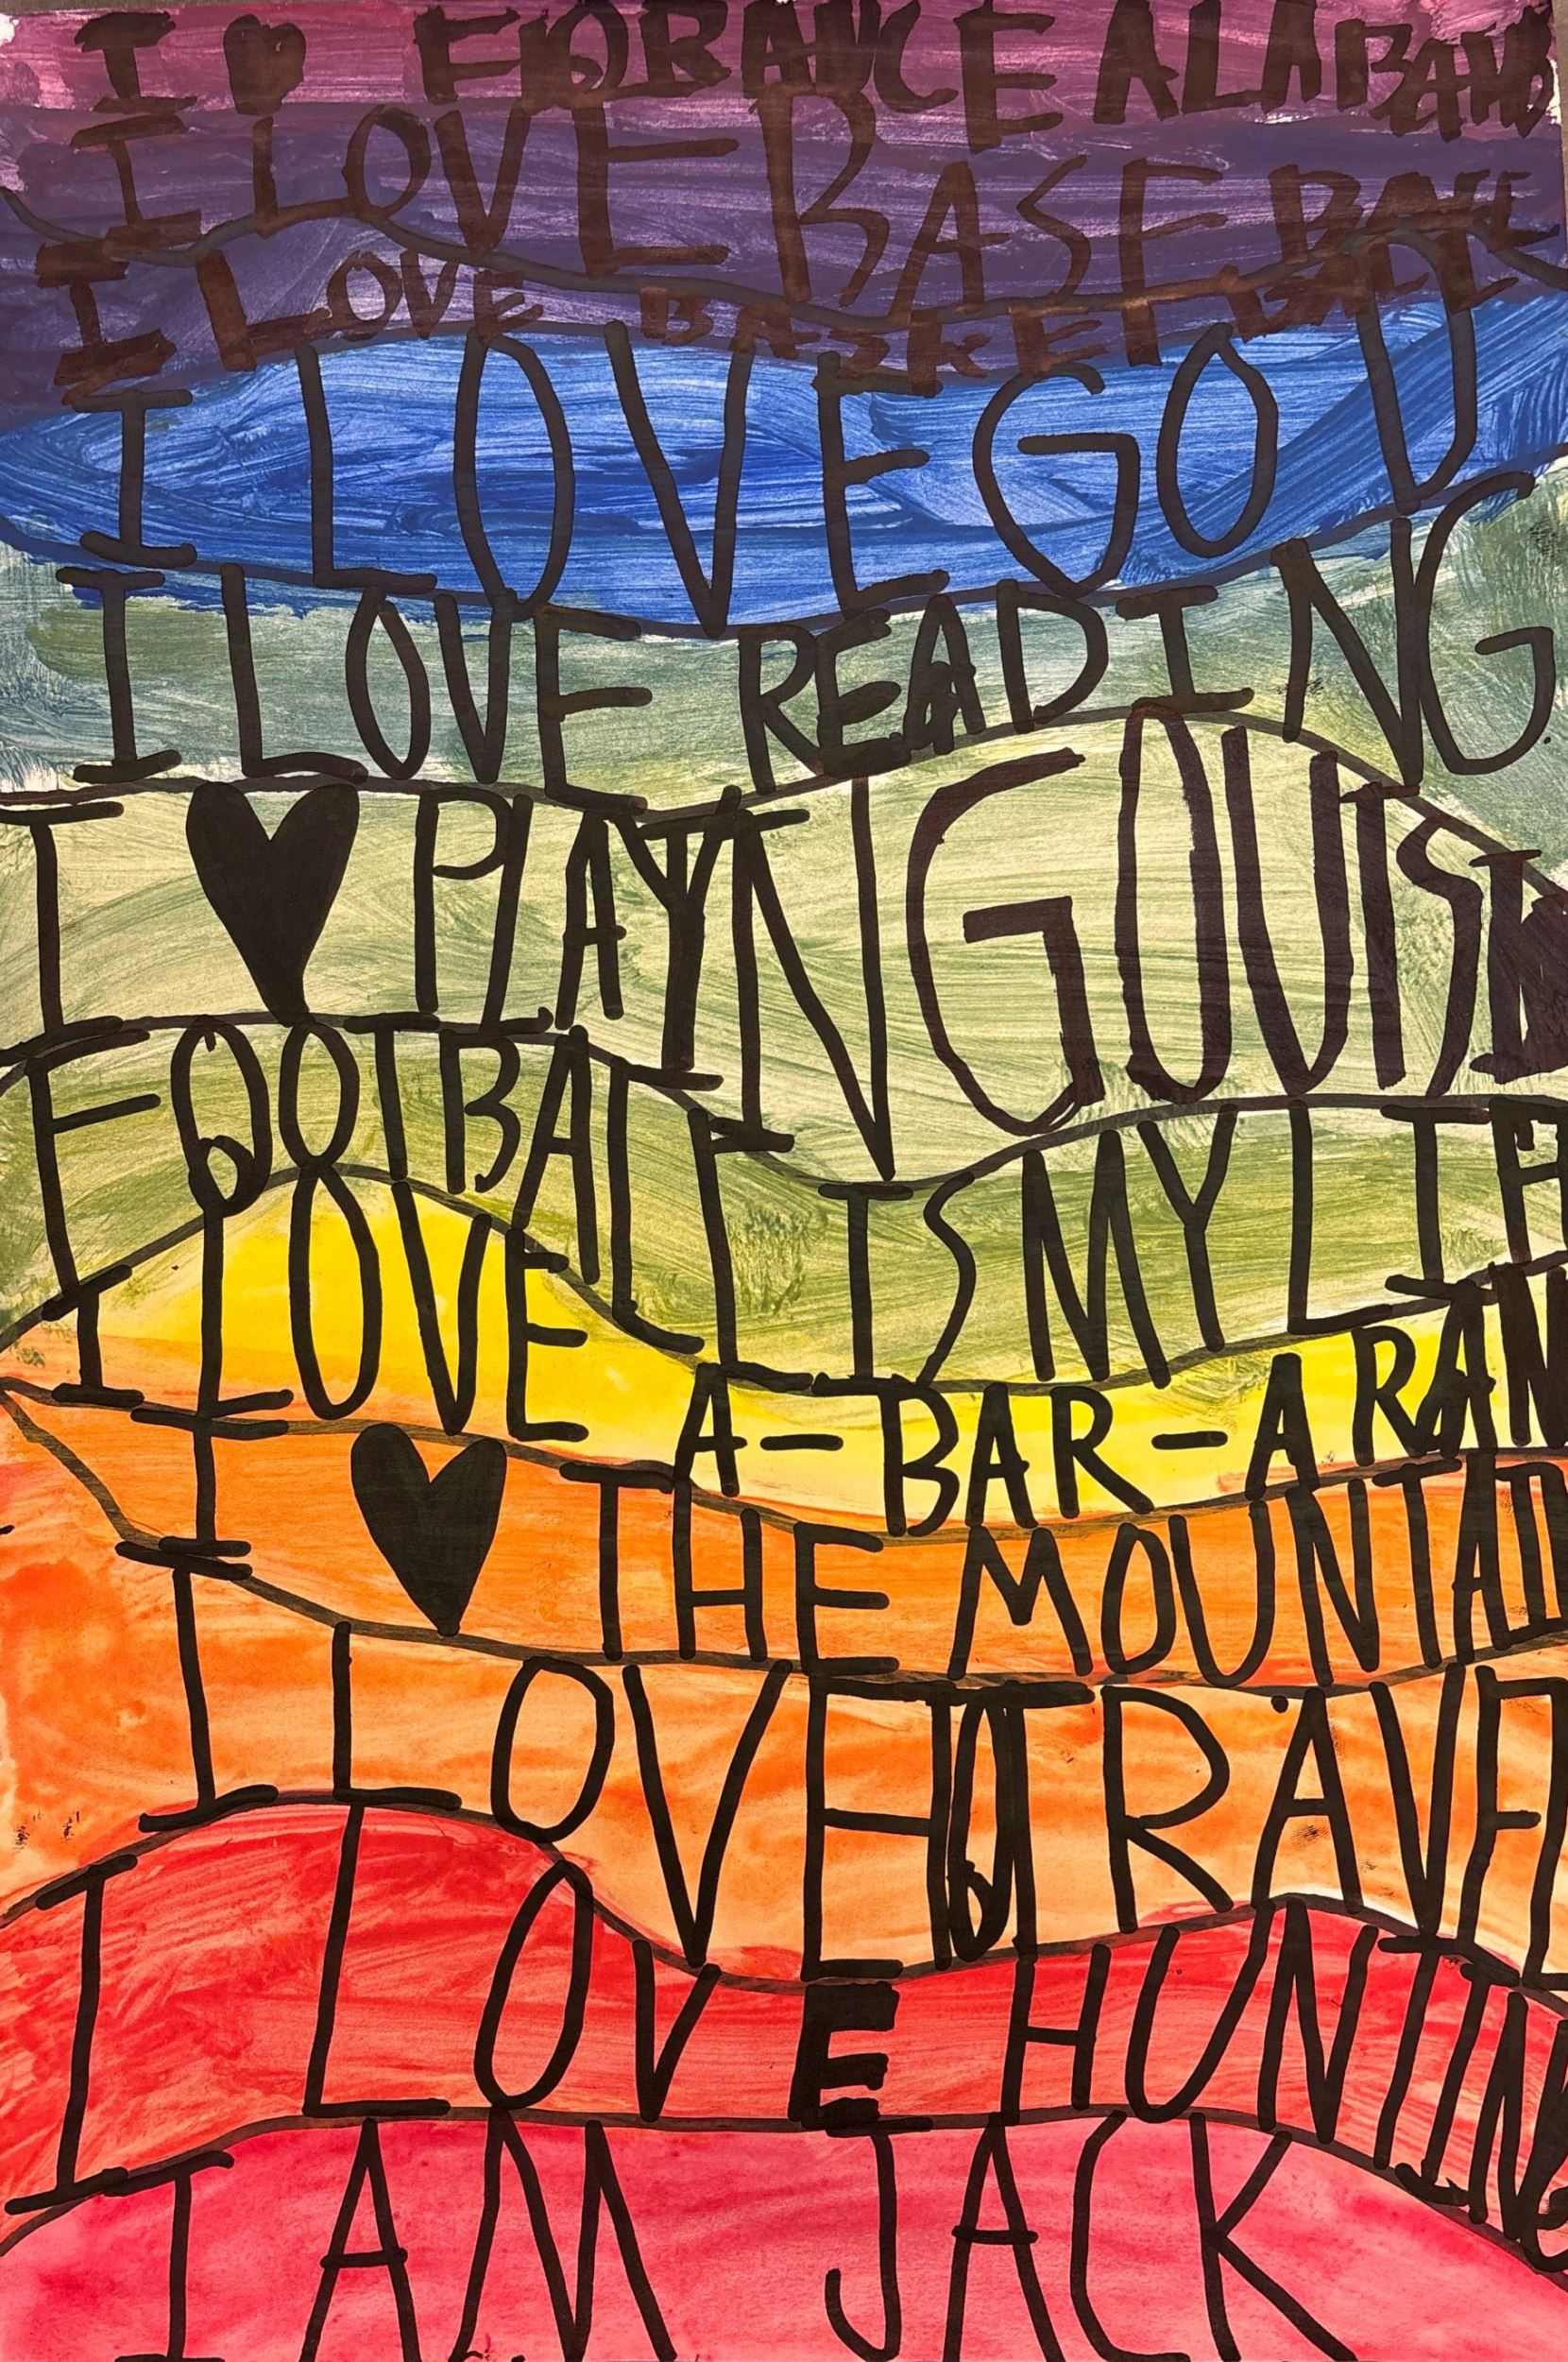 I ♥ FLORANCE ALABAMA
I LOVE BASEBALL
I LOVE BASKETBALL
I LOVE GOD
I LOVE READING
I ♥ PLAYN
FOOTBALL IS MY LIFE
I LOVE A-BAR-A RAN
I ♥ THE MOUNTAIN
I LOVE TO TRAVEL
I LOVE HUNTING
I AM JACK